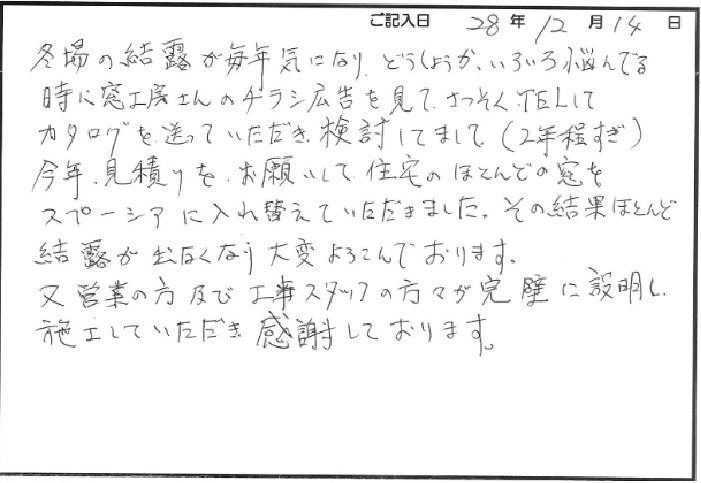 ご記入日 28年12月14日
冬場の結露が毎年気になり、どうしようか、いろいろ悩んでる
時に窓工房さんのチラシ広告を見て、さっそくTELして
カタログを送っていただき検討してまして(2年程すぎ)
今年、見積りを、お願いして、住宅のほとんどの窓を
スペーシアに入れ替えていただきました。その結果ほとんど
結露が出なくなり大変よろこんでおります。
又営業の方及び工事スタッフの方々が完璧に説明し、
施工していただき感謝しております。